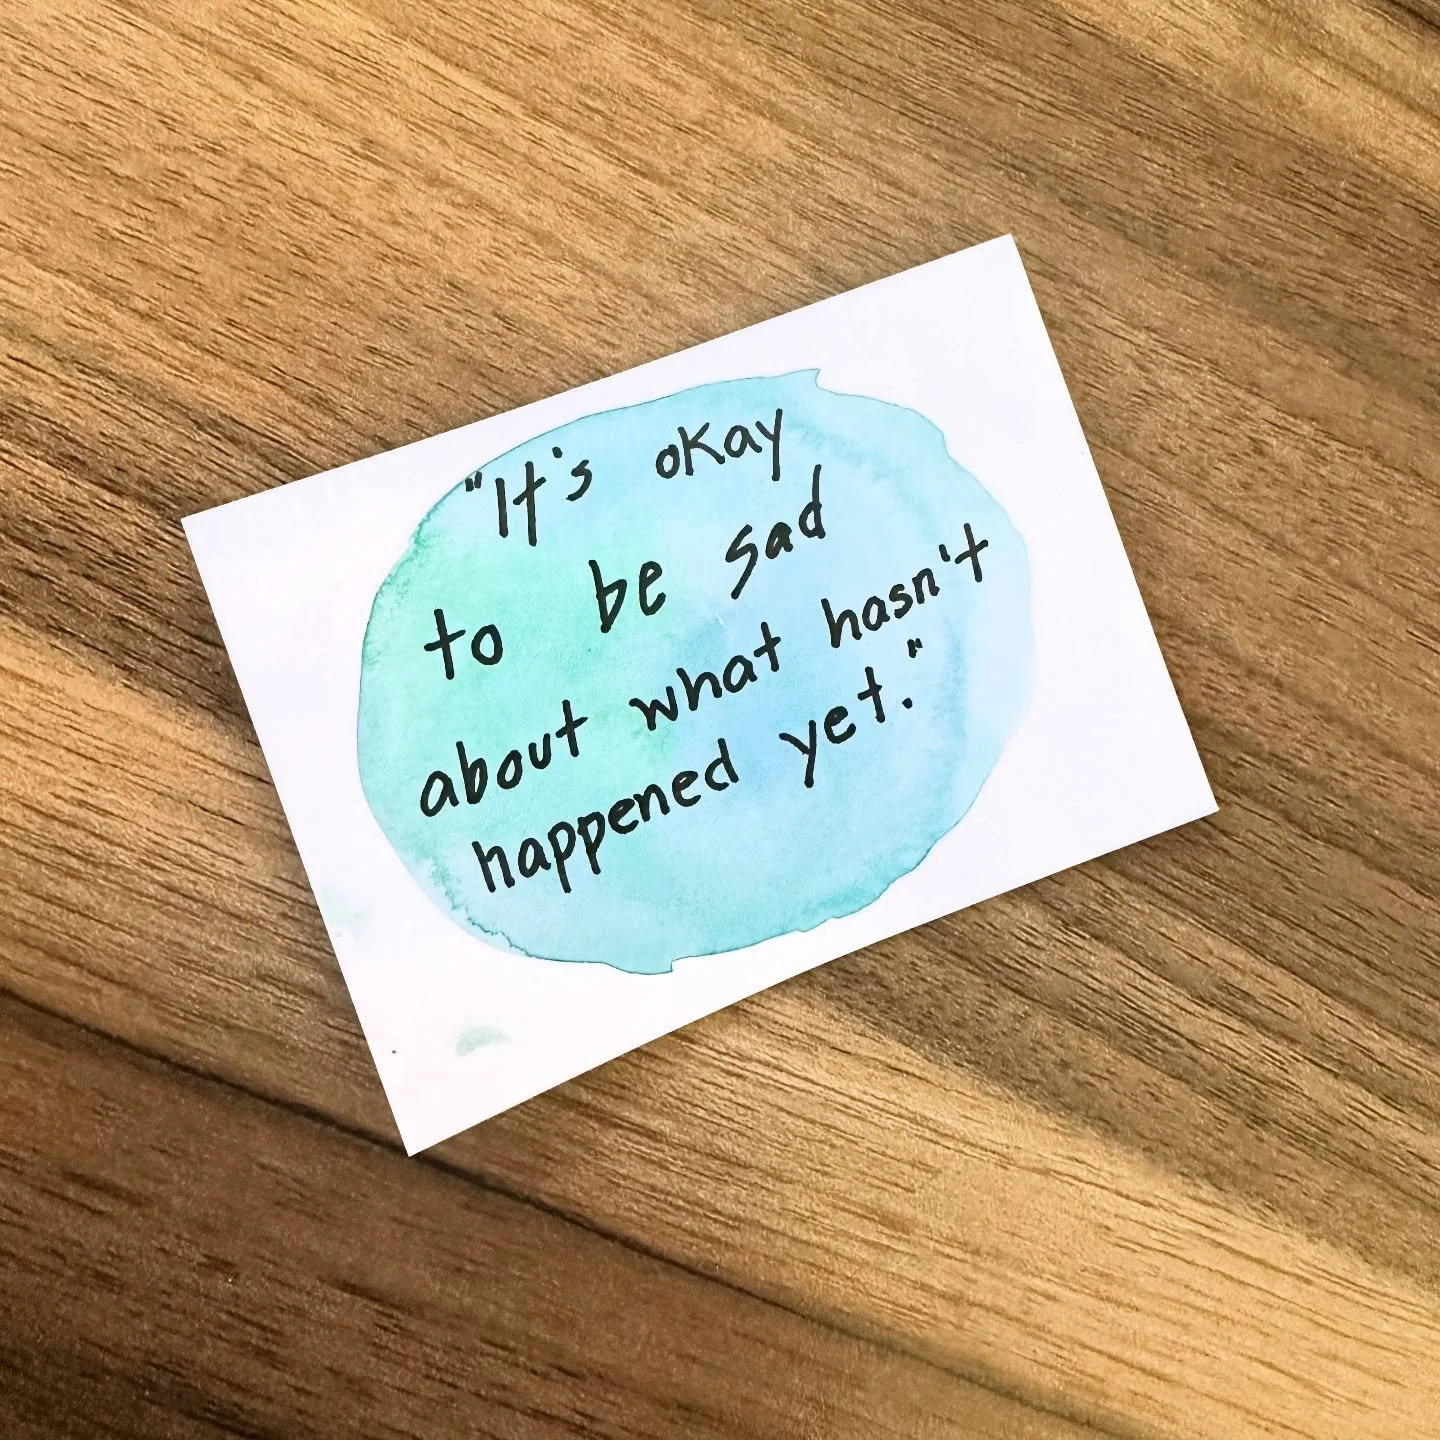 "It's okay
to be sad
about what hasn't
happened yet."